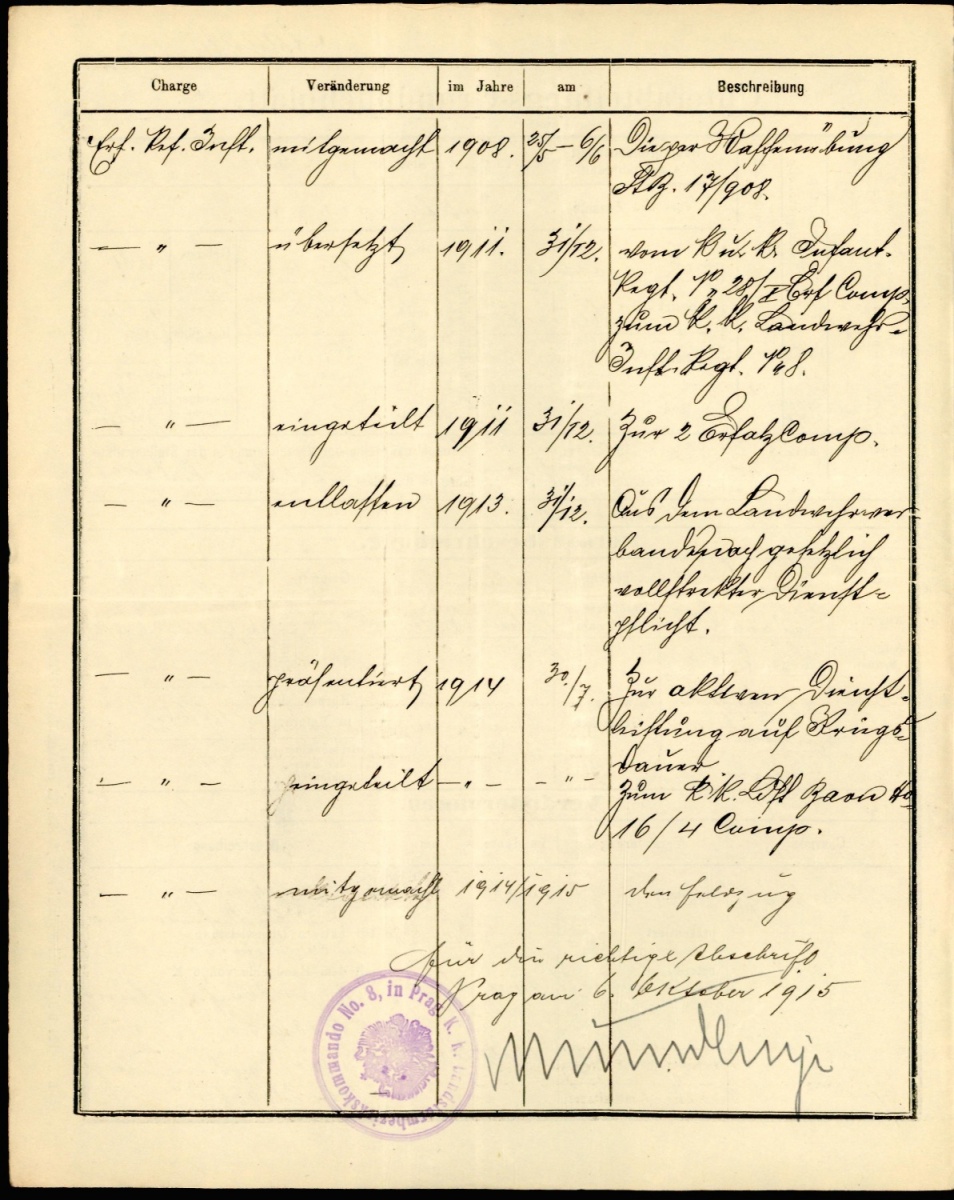 Charge Veränderung im Jahre am Beschreibung
Ers. Res. Inft. mitgemacht 1908. 25/5 – 6/6 Die per Waffenübung
17/908.
— „ — übersetzt 1911. 31/12. vom k. u. k. Infant.
Regt. No 28/I Ers Comp.
zum k. k. Landwehr-
Inft. Regt. No 8.
— „ — eingeteilt 1911 31/12. Zur 2 ErsatzComp.
— „ — entlassen 1913. 31/12. Aus dem Landwehrver
bande nach gesetzlich
vollstreckter Dienst=
pflicht.
— „ — präsentiert 1914 30./7. Zur aktiven Dienst-
leistung auf Kriegs-
dauer
— „ — eingeteilt – „ – – „ – Zum k. k. Ldst Baon No
16/4 Comp.
— „ — mitgemacht 1914/1915 den Feldzug
für die richtige Abschrift
Prag am 6. Oktober 1915
K. k. Landsturmbezirkskommando No. 8, in Prag